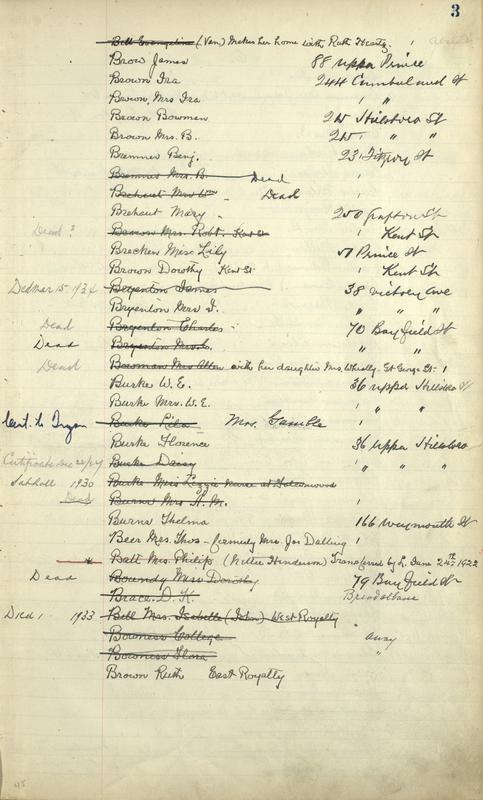 3
Bell Evangeline (Ven) Makes her home with Ruth Heartz
Brow James 88 Upper Prince
Brown Ira 244 Cumberland St
Brown, Mrs Ira " "
Brown Bowman 215 Hillsboro St
Brown Mrs. B. 215 " "
Bremner Benj. 231 Fitzroy St
Bremner Mrs. B. Dead
Brehaut Mrs Wm Dead
Brehaut Mary 250 Grafton St
Dead? Brown Mrs. Robt. Kent St Kent St
Brecken Miss Lily 51 Prince St
Brown Dorothy Kent St Kent St
Died Mar 15-1934 Bryenton James 38 Victory Ave
Bryenton Mrs J. " " "
Dead Bryenton Charles 70 Bayfield St
Dead Bryenton Mrs
Dead Bowman Mrs Allan with her daughter Mrs. St George St
Burke W. E. 36 Upper Hillsboro St
Burke Mrs. W. E. " "
Cert. to Tryon Burke Lila Mrs. Gamble
Burke Florence 36 Upper Hillsboro
Burke Daisy " " "
1930 Burke Miss Lizzie nurse at Falconwood
Dead Burns Mrs A. M.
Burns Thelma 166 Weymouth St
Beer Mrs. Thos - formerly Mrs. Jos Dalling
Batt Mrs. Philip (Nellie Henderson) Transferred by L. June 24th 1922
Dead Boundy Mrs Dorothy 79 Bayfield St
Brace D. K. Breadalbane
Died, 1933 Bell Mrs. Isabella (John) West Royalty
Bowness College away
Bowness Flora "
Brown Ruth East Royalty